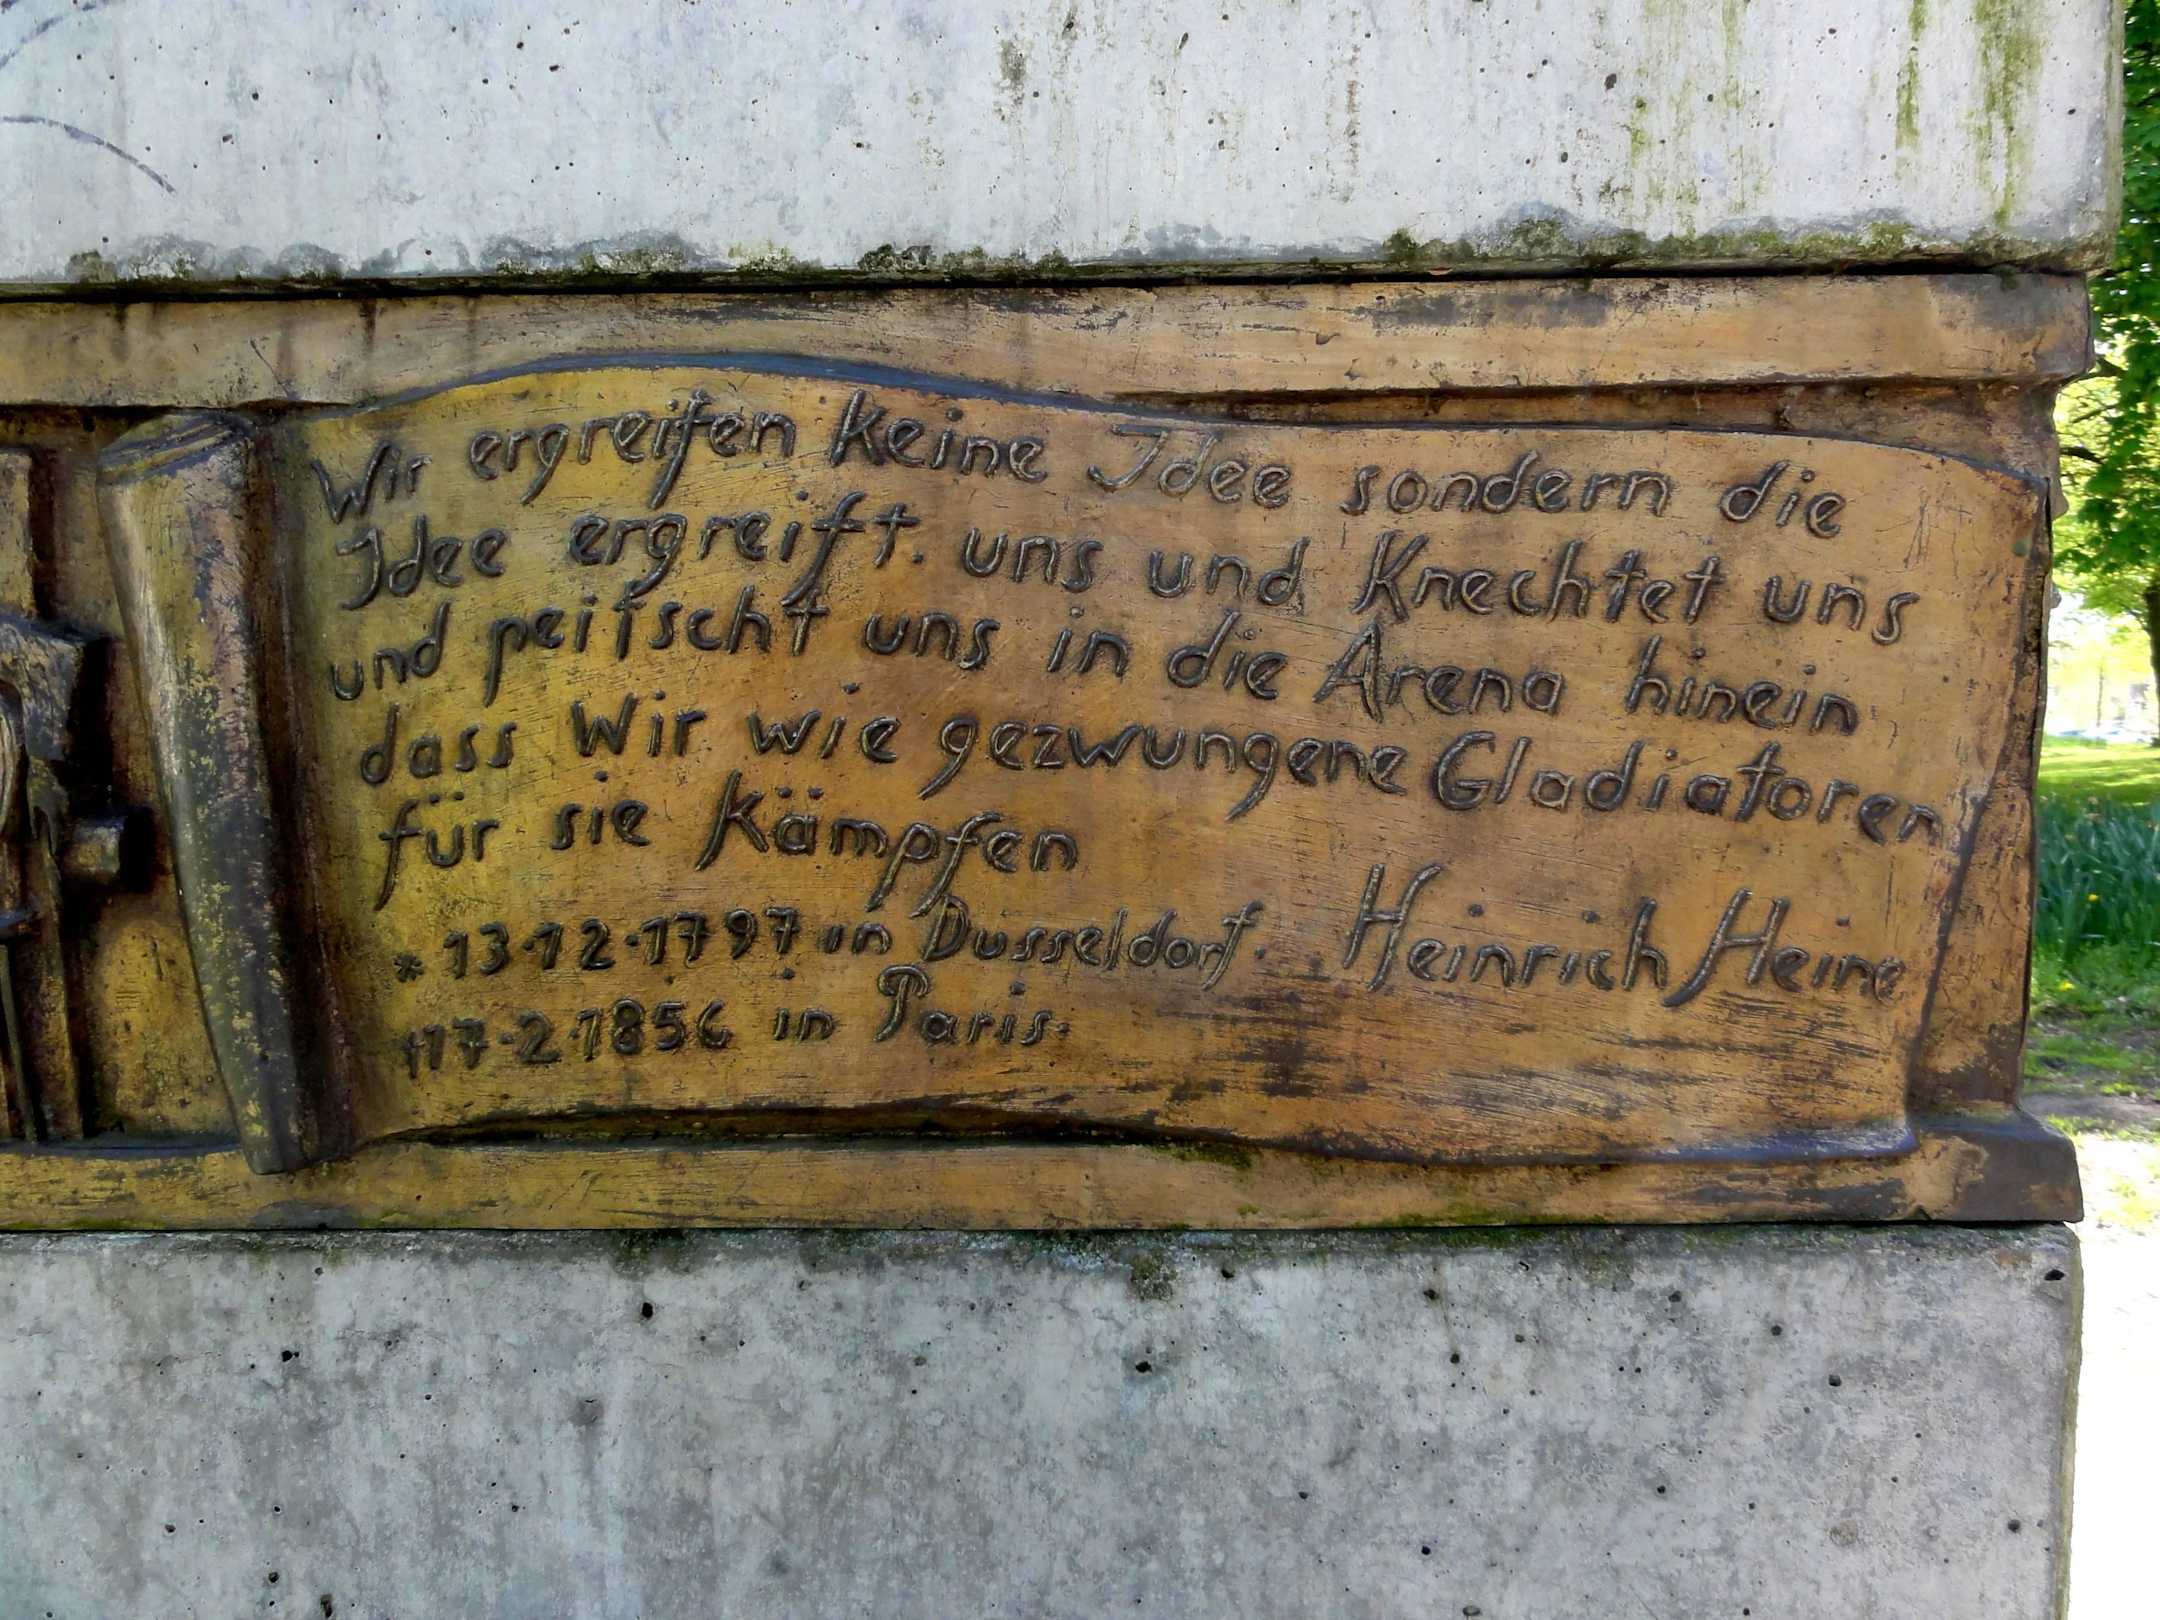 Wir ergreifen keine Idee sondern die
Idee ergreift. uns und Knechtet uns
und peitscht uns in die Arena hinein
dass Wir wie gezwungene Gladiatoren
für sie Kämpfen
* 13·12·1797 in Dusseldorf. Heinrich Heine
†17·2·1856 in Paris.